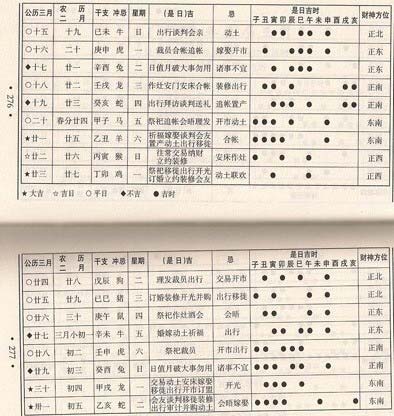 公历三月 农历二月 干支 冲忌 星期 (是日)吉 忌 是日吉时 财神方位
子丑寅卯辰巳午未申酉戌亥
○十五 十九 己未 牛 日 出行谈判会亲 动土 正北
○十六 二十 庚申 虎 一 裁员合帐追帐 嫁娶开市 正东
◆十七 廿一 辛酉 兔 二 日值月破大事勿用 诸事不宜 正东
○十八 廿二 壬戌 龙 三 作灶安门安床合帐 装修出行 正南
◆十九 廿三 癸亥 蛇 四 出行拜访谈判送礼 追帐置产 正南
○二十 春分廿四 甲子 马 五 祭祀追帐会晤理发 开市动土 东南
★廿一 廿五 乙丑 羊 六 祈福嫁娶谈判会友 置产动土出行移徙 合帐 东南
☆廿二 廿六 丙寅 猴 日 往常交易纳财 立约装修 安床作灶 正西
★廿三 廿七 丁卯 鸡 一 祭祀移徙出行开光 订婚立约装修会友 动土联欢 正西
★大吉 ☆吉日 ○平日 ◆不吉 ●吉时
·276·
公历三月 农历二月 干支 冲忌 星期 (是日)吉 忌 是日吉时 财神方位
子丑寅卯辰巳午未申酉戌亥
○廿四 廿八 戊辰 狗 二 理发裁员出行 交易开市 正北
☆廿五 廿九 己巳 猪 三 订婚装修开光并购 出行移徙 正北
○廿六 三十 庚午 鼠 四 祭祀作灶酒会 会晤 正东
◆廿七 三月小初一 辛未 牛 五 婚嫁动土祈福 出行 正东
○廿八 初二 壬申 虎 六 祭祀裁员 开市出行 正南
◆廿九 初三 癸酉 兔 日 日值月破大事勿用 诸事不宜 正南
★三十 初四 甲戌 龙 一 交易动土安床嫁娶 移徙出行开市订盟 开光 东南
★卅一 初五 乙亥 蛇 二 会友谈判移徙装修 出行审计并购动土 会晤嫁娶 东南
·277·